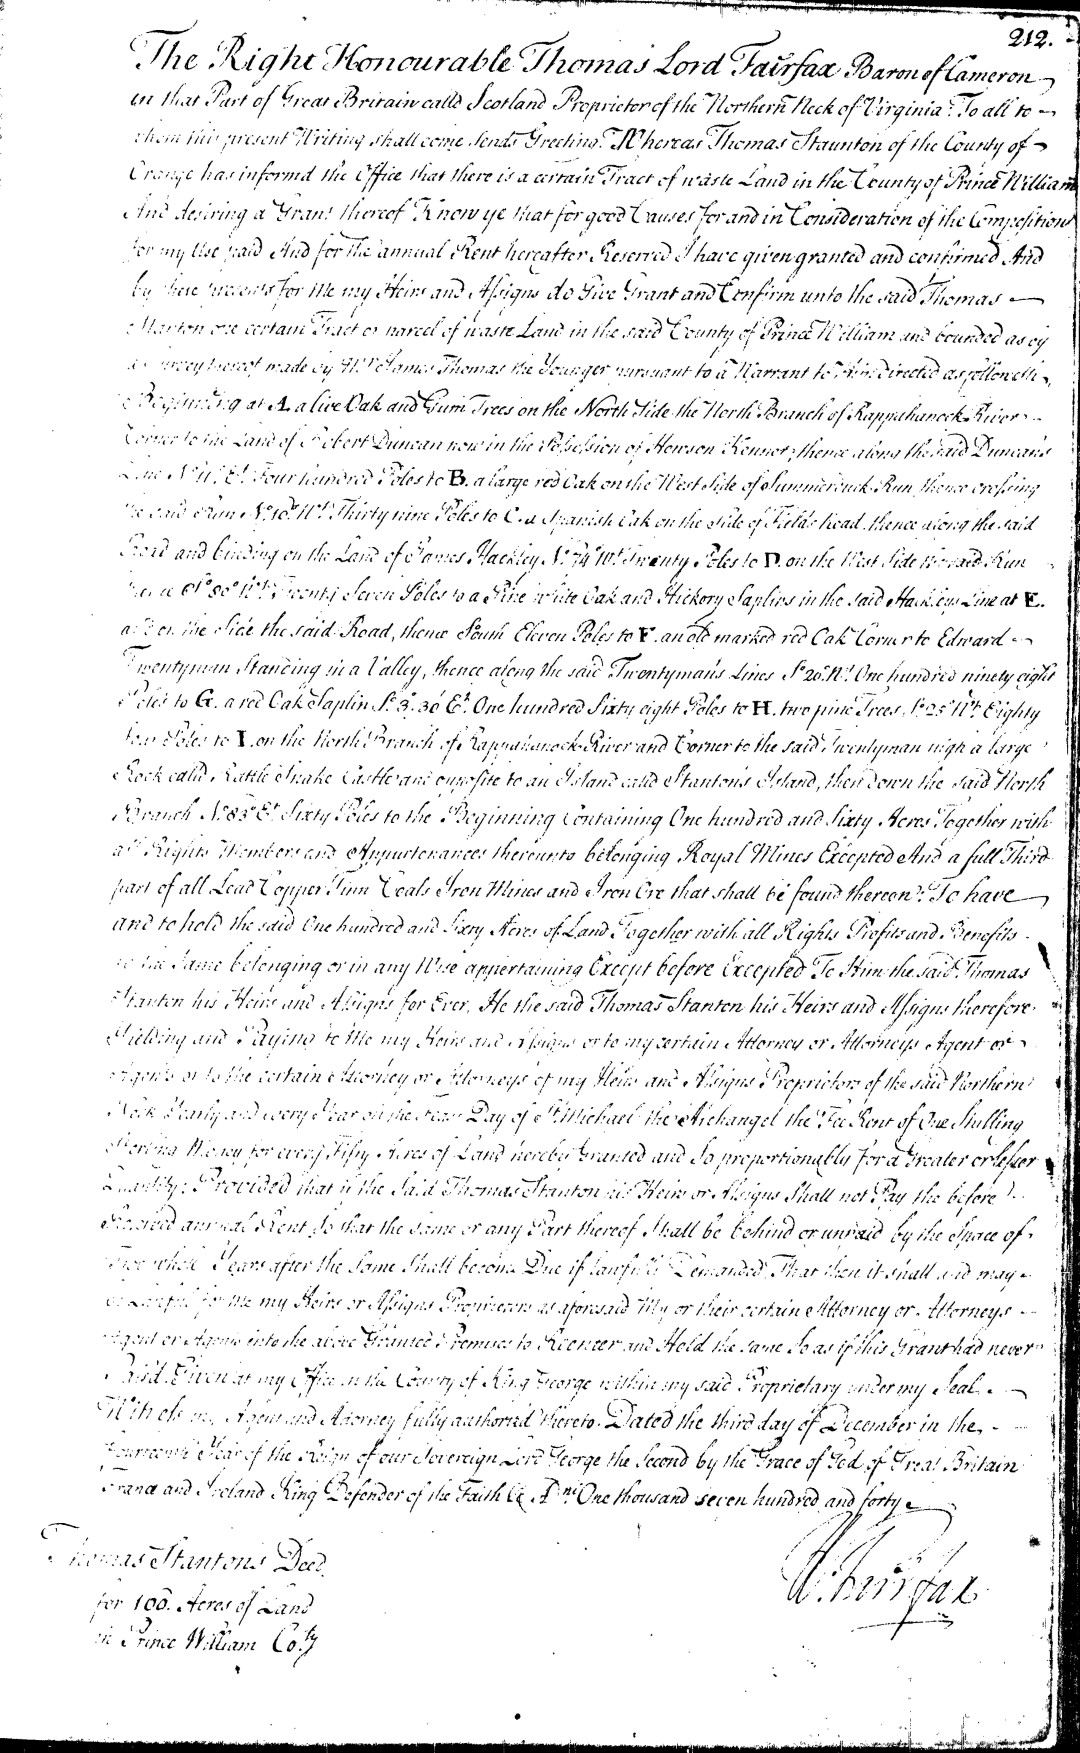 212.
The Right Honourable Thomas Lord Fairfax Baron of Cameron
in that Part of Great Britain call'd Scotland Proprietor of the Northern Neck of Virginia To all to
whom this present Writing shall come sends Greeting. Whereas Thomas Staunton of the County of
Orange has informed the Office that there is a certain Tract of waste Land in the County of Prince William
And desiring a Grant thereof Know ye that for good Causes for and in Consideration of the Composition
for my Use paid And for the annual Rent hereafter Reserved I have given granted and confirmed And
by these presents for Me my Heirs and Assigns do Give Grant and Confirm unto the said Thomas
one certain Tract or parcel of waste Land in the said County of Prince William and bounded as by
a survey thereof made by Mr. James Thomas the Younger pursuant to a Warrant to him directed as followeth
Beginning at A. a live Oak and Gum Trees on the North Side the North Branch of Rappahanock River
Corner to the Land of Robert Duncan now in the Possession of Howson Kenner, thence along the said Duncan's
Line Four hundred Poles to B. a large red Oak on the West Side of Summerduck Run, thence crossing
the said Run Thirty nine Poles to C. a Spanish Oak on the side of Fields Road, thence along the said
Road and binding on the Land of James Hackley No. 74° Wt. Twenty Poles to D. on the West Side the said Run
thence Twenty Seven Poles to a Pine white Oak and Hickory Saplins in the said Hackleys Line at E.
and on the Side the said Road, thence South Eleven Poles to F. an old marked red Oak Corner to Edward
Twentyman Standing in a Valley, thence along the said Twentyman's Lines So. 20° Wt. One hundred ninety eight
Poles to G. a red Oak Saplin So. 3.° 30' Et. One hundred Sixty eight Poles to H. two pine Trees, So. 25° Wt. Eighty
four Poles to I. on the North Branch of Rappahanock River and Corner to the said Twentyman nigh a large
Rock call'd Rattle Snake Castle and opposite to an Island call'd Stanton's Island, then down the said North
Branch No. 83° Et. Sixty Poles to the Beginning Containing One hundred and Sixty Acres Together with
all Rights Members and Appurtenances thereunto belonging Royal Mines Excepted And a full Third
part of all Lead Copper Tinn Coals Iron Mines and Iron Ore that shall be found thereon. To have
and to hold the said One hundred and Sixty Acres of Land Together with all Rights Profits and Benefits
to the same belonging or in any Wise appertaining Except before Excepted To Him the said Thomas
Stanton his Heirs and Assigns for Ever, He the said Thomas Stanton his Heirs and Assigns therefore
Yielding and Paying to Me my Heirs and Assigns or to my certain Attorney or Attorneys Agent or
Agents or to the certain Attorney or Attorneys of my Heirs and Assigns Proprietors of the said Northern
Neck Yearly and every Year on the Feast Day of St. Michael the Archangel the Fee Rent of One Shilling
Sterling Money for every Fifty Acres of Land hereby Granted and So proportionably for a Greater or lesser
Quantity: Provided that if the Said Thomas Stanton his Heirs or Assigns Shall not Pay the before
Reserved annual Rent So that the same or any Part thereof Shall be behind or unpaid by the Space of
Two whole Years after the Same Shall become Due if Lawfully Demanded That then it shall and may
be Lawful for Me my Heirs or Assigns Proprietors as aforesaid My or their certain Attorney or Attorneys
Agent or Agents into the above Granted Premises to Reenter and Hold the same So as if this Grant had never
Pass'd. Given at my Office in the County of King George within my said Proprietary under my Seal.
Witness my Agent and Attorney fully authorized thereto. Dated the third day of December in the
Fourteenth Year of the Reign of our Sovereign Lord George the Second by the Grace of God of Great Britain
France and Ireland King Defender of the Faith &c. Dni. One thousand seven hundred and forty
Thomas Stanton's Deed
for 160. Acres of Land
in Prince William Coty.
W. Fairfax